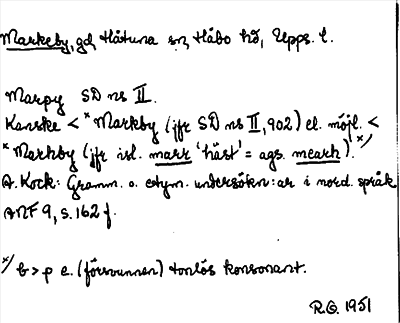 Markeby, gd, Håtuna sn, Håbo hd, Upps. l.
Marpy SD ns II.
Kanske < *Markby (jfr SD ns II, 902) el. möjl. <
*Marhby (jfr isl. marr 'häst' = ags. mearh). x/
A. Kock: Gramm. o. etym. undersökn:ar i nord. språk
ANF 9, s. 162 f.
x/ b > p e. (försvunnen) tonlös konsonant.
R.O. 1951